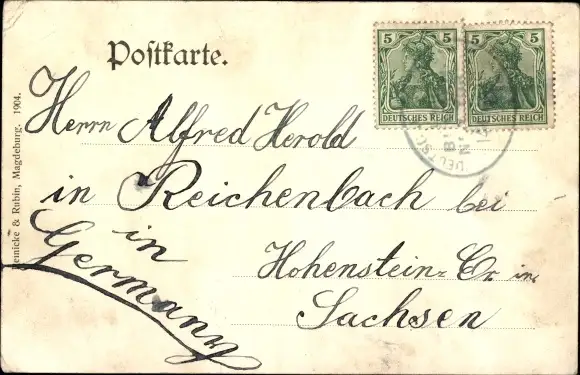 Postkarte.
5 5 5 5
DEUTSCHES REICH DEUTSCHES REICH
Herrn Alfred Herold
in Reichenbach bei
Hohenstein= Er. in
Sachsen
in
Germany
Reinicke & Rubin, Magdeburg. 1904.